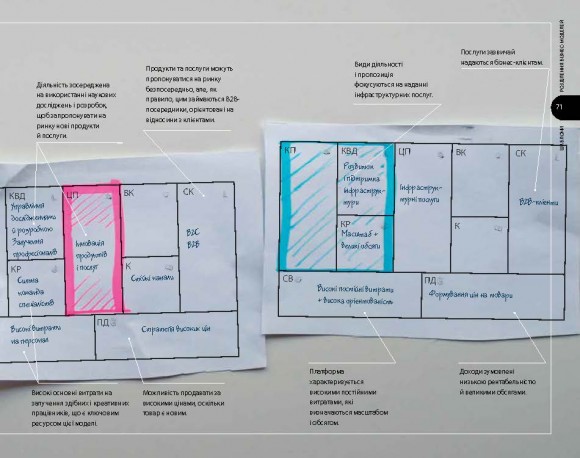 Діяльність зосереджена
на використанні наукових
досліджень і розробок,
щоб запропонувати на
ринку нові продукти
й послуги.
Продукти та послуги можуть
пропонуватися на ринку
безпосередньо, але, як
правило, цим займаються B2B-
посередники, орієнтовані на
відносини з клієнтами.
Види діяльності
і пропозиція
фокусуються на наданні
інфраструктурних послуг.
Послуги зазвичай
надаються бізнес-клієнтам.
РОЗДІЛЕННЯ БІЗНЕС-МОДЕЛЕЙ
71
КВД
Управління
дослідженнями
й розробкою
Залучення
професіоналів
КР
Сильна
команда
спеціалістів
ЦП
Інновація
продуктів
і послуг
ВК
К
Спільні канали
СК
B2C
B2B
Високі витрати
на персонал
ПД
Стратегія високих цін
КП
КВД
Розвиток
і підтримка
інфраструк-
тури
КР
Масштаб +
великі обсяги
ЦП
Інфраструк-
турні послуги
ВК
К
СК
B2B-клієнти
СВ
Високі постійні витрати
+ висока орієнтованість
ПД
Формування цін на товари
Високі основні витрати на
залучення здібних і креативних
працівників, що є ключовим
ресурсом цієї моделі.
Можливість продавати за
високими цінами, оскільки
товар є новим.
Платформа
характеризується
високими постійними
витратами, які
визначаються масштабом
і обсягом.
Доходи зумовлені
низькою рентабельністю
й великими обсягами.